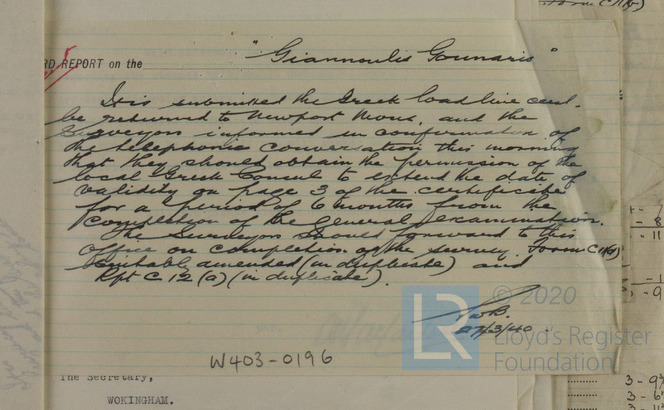 RD REPORT on the "Giannoulis Gounaris"
It is submitted the Greek load line cert.
be returned to Newport Mon, and the
Surveyors informed in confirmation of
the telephonic conversation this morning
that they should obtain the permission of the
local Greek Consul to extend the date of
validity on page 3 of the certificate
for a period of 6 months from the
completion of the general examination.
The Surveyors should forward to this
office on completion of the survey. Form C11(a)
suitably amended (in duplicate) and
Rpt C 12 (a) (in duplicate).
27/3/40
© 2020
LR
Lloyd's Register
Foundation
W403-0196
The Secretary,
WOKINGHAM.